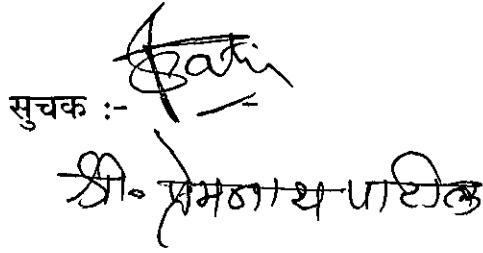 सुचक :-
श्री. प्रेमनाथ पाटील